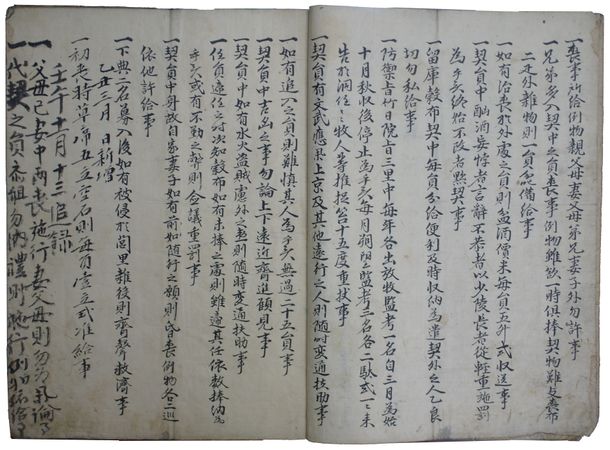 一喪事所給例物親父母妻父母弟兄妻子外勿許事
一兄弟多入契中之員喪事例物雖欲一時俱捧契物難支喪布
二疋外雜物則一員例備給事
一如有浴喪於外處之員則盆酒價米每員五升式收送事
一契員中酗酒妄悖者言辭不恭者以少陵長者從輕重施罰
為乎矣終始不改者黜契事
一留庫穀布契中每員分給便利及時收納為遣契外之人乙良
切勿私給事
一防禦上竹日院上三里中每年各出放牧監考一名自三月為始
十月秋收後停止為乎矣每月朔問之監考三名各二駄式一一來
告於洞任之牧人等推捉笞十五度重杖事
一契員有文武應擧上京及其他遠行之人則隨時変通扶助事
一如有追入之員則雖慎其人為乎矣無過二十五員事
一契員中吉凶之事勿論上下遠近齊進顧見事
一契員中如有水火盜賊慮外之患則隨時変通扶助事
一任員遞任之時次知穀布如有未捧之處則雖遞其任依數捧納為
乎矣或有不勤之弊則合議重罰事
一契員中身故自家妻子如有前如隨行之願則昏喪例物各二巡
依他許給事
一下典二名募入後如有被侵於閭里雜役則齊聲救濟事
乙丑三月 日新增
一初喪時草席五立空石則每員壹立式准給事
壬午十一月十三日追錄
一父母己妻中兩喪施行妻父母則勿為擧論事
一代契之員